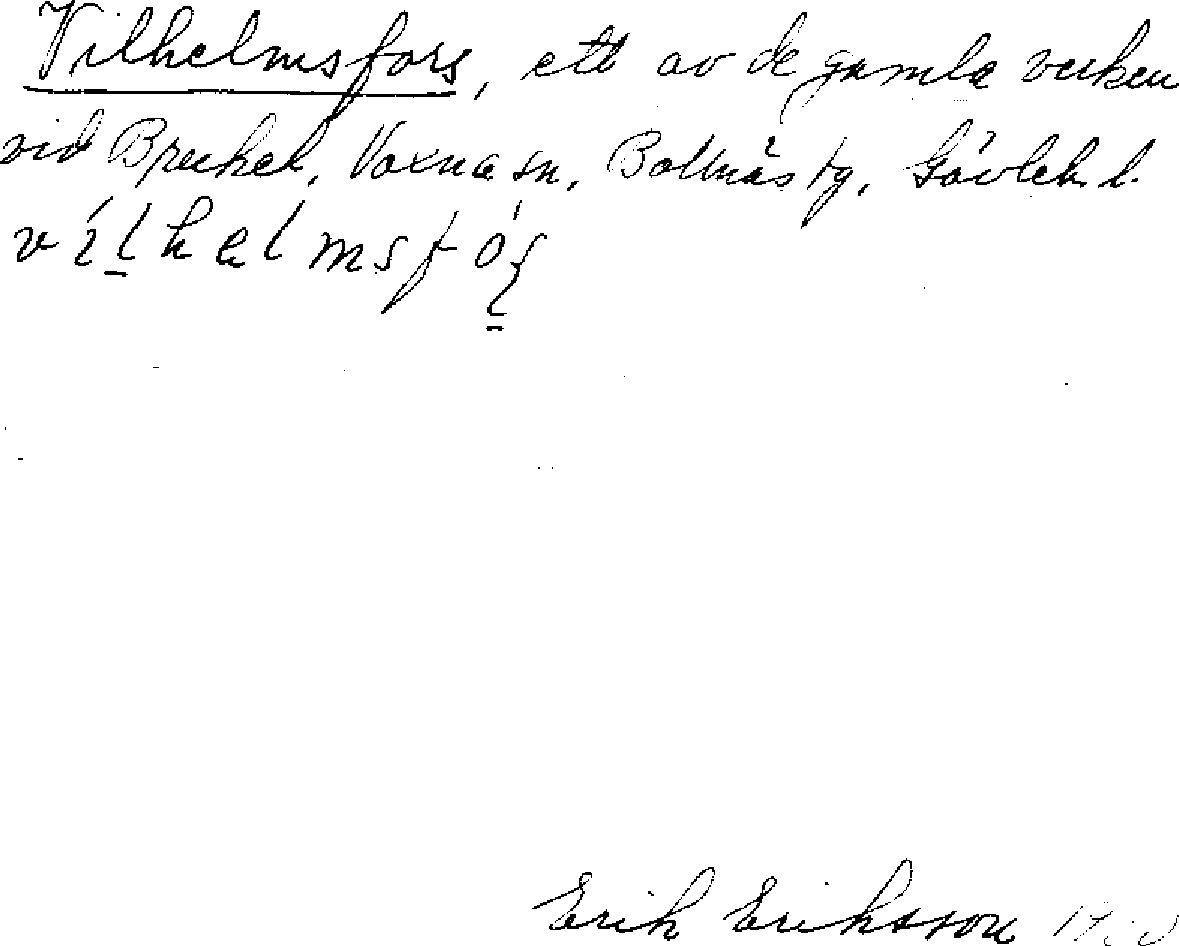 Vilhelmsfors, ett av de gamla verken
vid Bruket, Voxna sn, Bollnäs tg, Gävleb. l.
vílhelmsfóʂ
Erik Eriksson